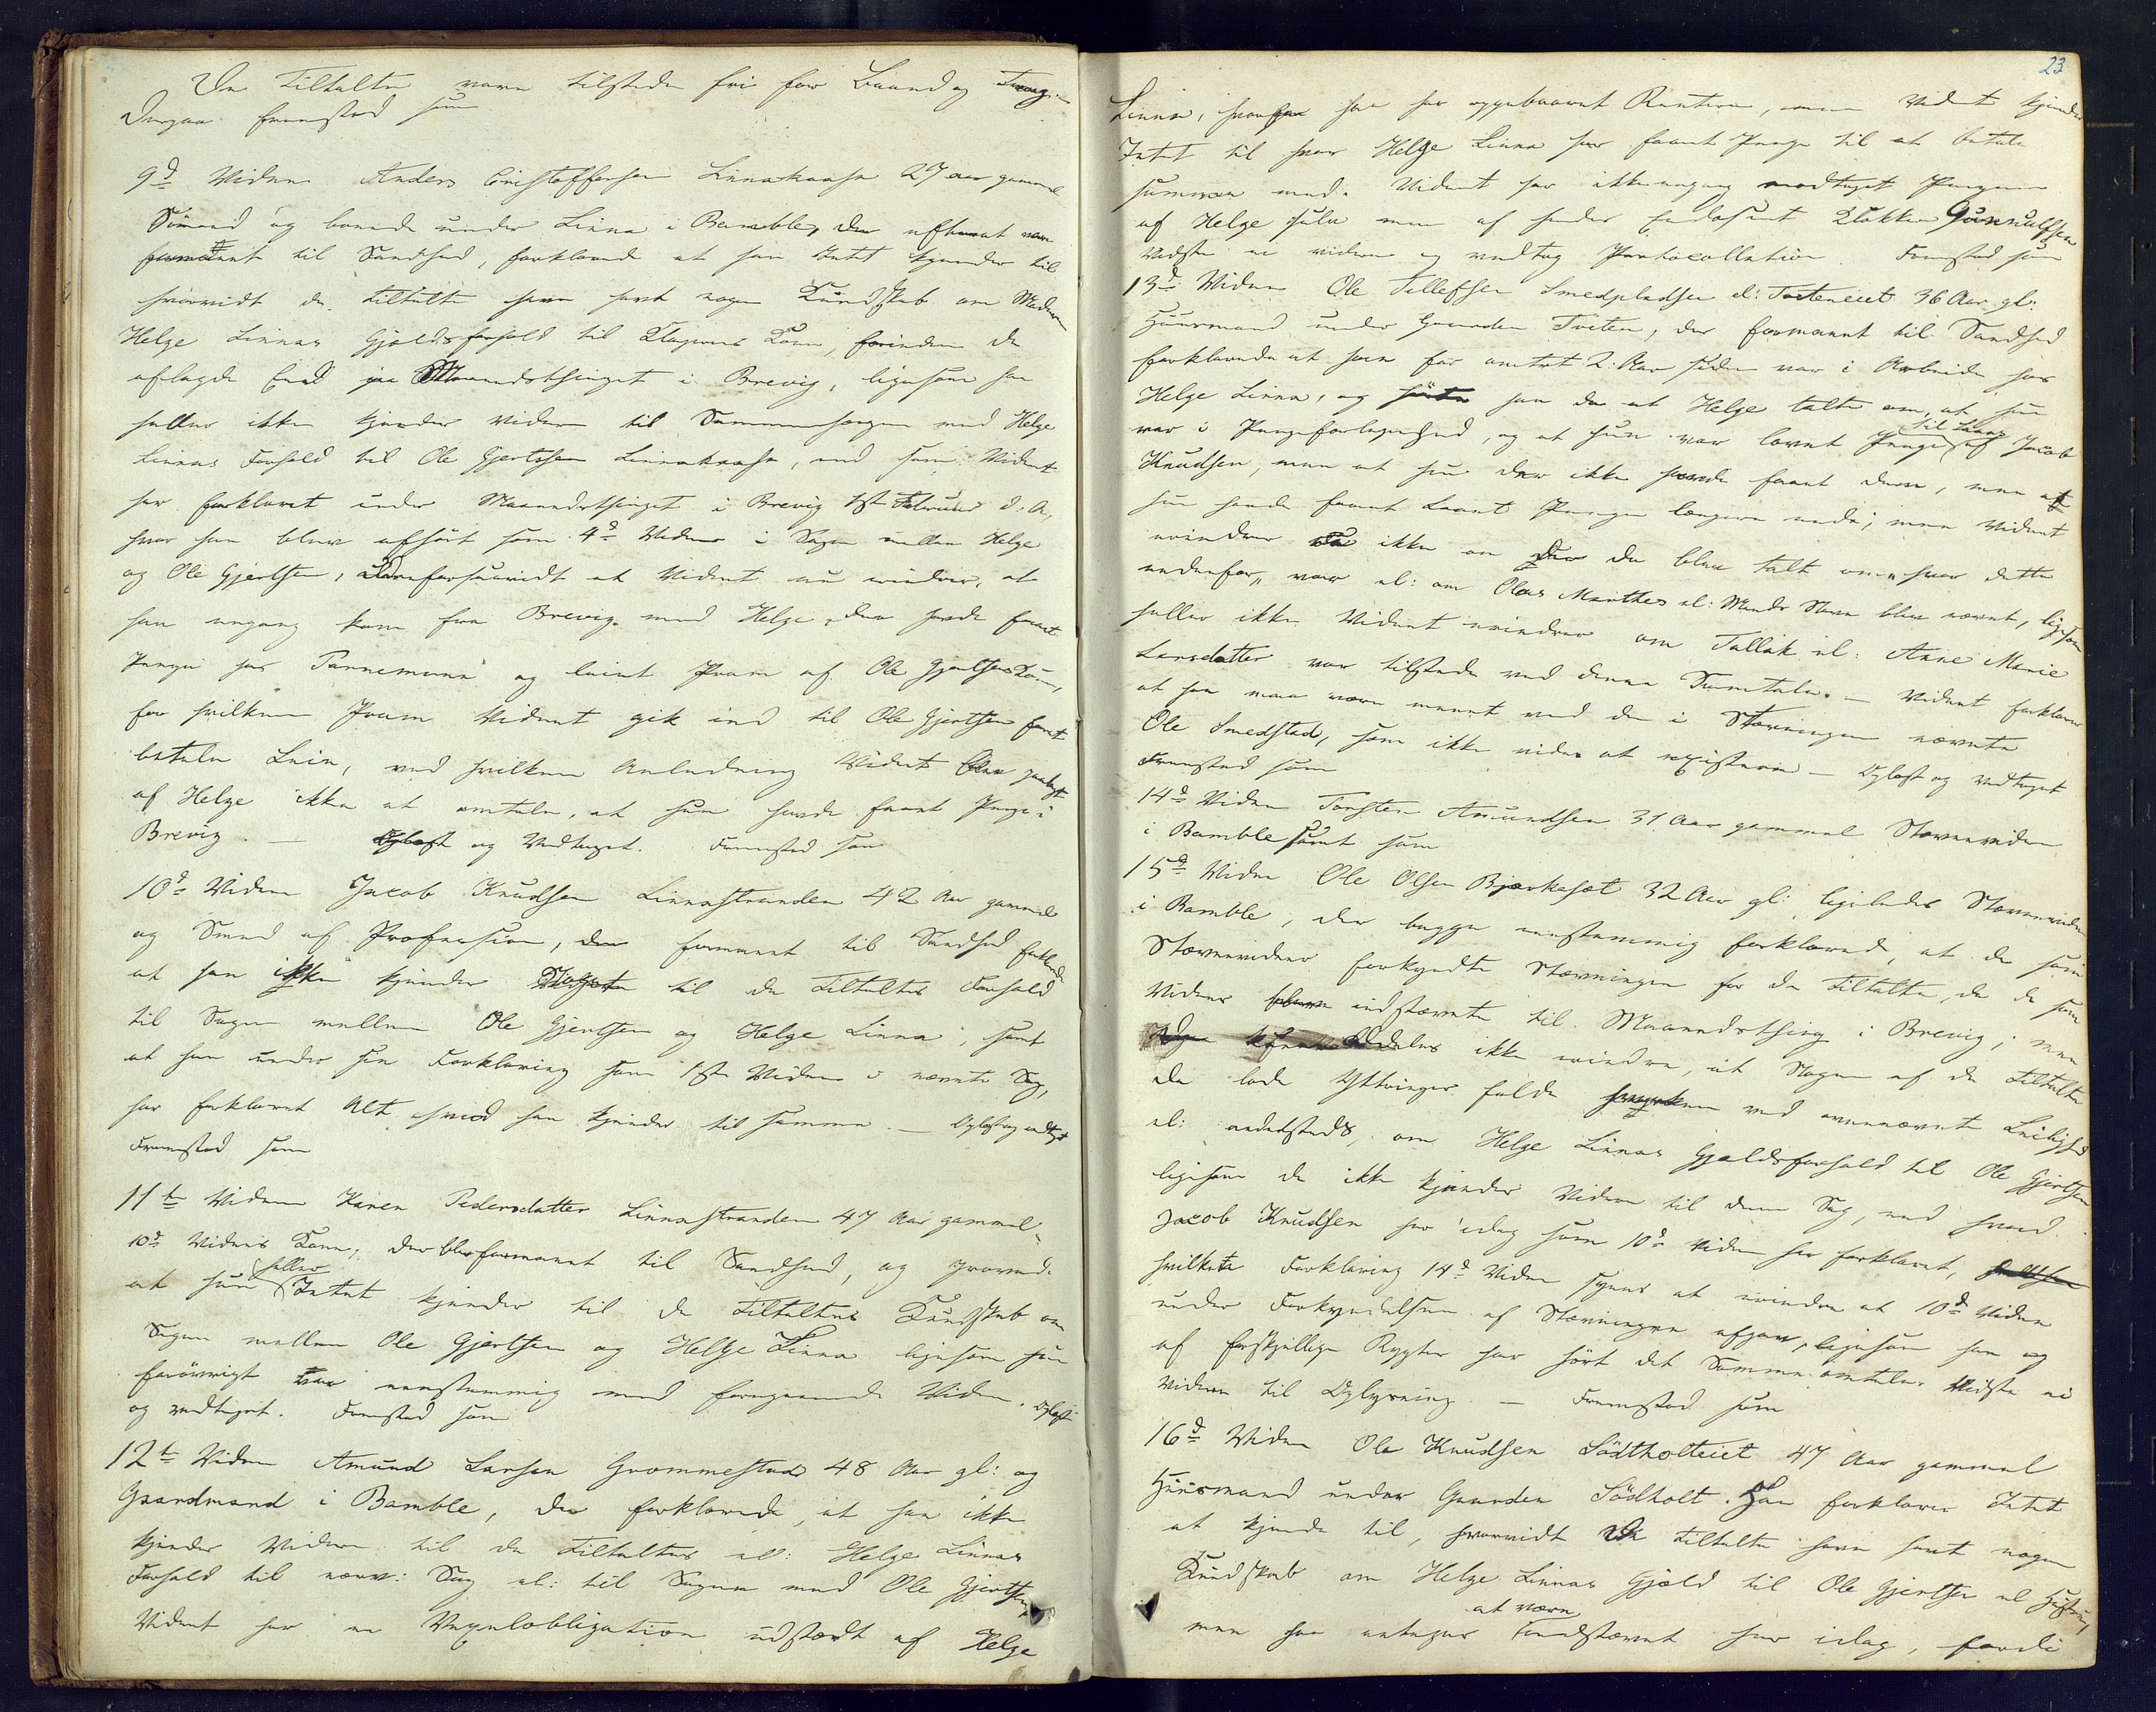 De Tiltalte vare tilstede fri for Baand og Tvang.
Derpaa fremstod som
9d Vidne Anders Cristoffersen Linnakaasa 27 aar gammel
Sömand og boende under Linna i Bamble, der efterat være
formanet til Sandhed, forklarede at han Intet kjender til
hvorvidt de Tiltalte have havt nogen Kundskab om Madam
Helge Linnas Gjældsforhold til Klagerens Kone, forinden de
aflagde Eed paa Maanedsthinget i Brevig, ligesom han
heller ikke kjender videre til Sammenhængen med Helge
Linnas Forhold til Ole Gjertsen Linnakaasa, end som Vidnet
har forklaret under Maanedsthinget i Brevig 1st Februar d. A.
hvor han blev afhört som 4d Vidne i Sagen mellem Helge
og Ole Gjertsen, forsaavidt at Vidnet nu erindrer, at
han engang kom fra Brevig med Helge, der havde faaet
Penge hos Pannemann og leiet Pram af Ole Gjertsens Kone,
for hvilken Pram Vidnet gik ind til Ole Gjertsen for at
betale Leie, ved hvilken Anledning Vidnet blev paalagt
af Helge ikke at omtale, at hun havde faaet Penge i
Brevig. — Oplæst og Vedtaget. Fremstod som
10d Vidne Jacob Knudsen Linnastranden 42 Aar gammel
og Smed af Profession, der formanet til Sandhed forklarede
at han ikke kjender til de Tiltaltes Forhold
til Sagen mellem Ole Gjertsen og Helge Linna, samt
at han under sin Forklaring som 1ste Vidne i nævnte Sag,
har forklaret Alt hvad han kjender til samme. — Oplæst og vedtaget
Fremstod som
11te Vidne Karen Pedersdatter Linnastranden 47 Aar gammel,
10d Vidnes Kone, der blev formanet til Sandhed, og provede
at hun heller Intet kjender til de Tiltaltes Kundskab om
Sagen mellem Ole Gjertsen og Helge Linna ligesom hun
forövrigt var eenstemmig med foregaaende Vidne. Oplæst
og vedtaget. Fremstod som
12te Vidne Amund Larsen Grommestad 48 Aar gl: og
Gaardmand i Bamble, der forklarede, at han ikke
kjender videre til de Tiltaltes el: Helge Linnas
Forhold til nærv: Sag el: til Sagen med Ole Gjertsen.
Vidnet har en Vexelobligation udstædt af Helge
23
Linna, hvorfor han har oppebaaret Renterne, men Vidnet kjender
Intet til hvor Helge Linna har faaet Penge til at betale
summen med. Vidnet har ikke engang modtaget Pengene
af Helge selv men af hendes Klokker Gunnulfsen
Vidste ei videre og vedtog Protocollation. Fremstod som
13d Vidne Ole Tellefsen Smedpladsen el: Tveteneiet 36 Aar gl:
Huusmand under Gaarden Tveten, der formanet til Sandhed
forklarede at han for omtrent 2 Aar siden var i Arbeide hos
Helge Linna, og hörte han da at Helge talte om, at hun
var i Pengeforlegenhed, og at hun var lovet Penge til Laans af Jacob
Knudsen, men at hun der ikke havde faaet dem, men at
hun havde faaet laant Penge længere nede; men Vidnet
erindrer ikke om der da blev talt om, hvor dette
nedenfor, var el: om Olea Marthes el: Mands Navn blev nævnt, ligesom
heller ikke Vidnet erindrer om Tallak el: Anne Marie
Larsdatter var tilstede ved denne Samtale. — Vidnet forklarer
at han maa være meent med den i Stævningen nævnte
Ole Smedstad, som ikke vides at existere — Oplæst og Vedtaget
Fremstod som
14d Vidne Torsten Amundsen 31 Aar gammel Stævnevidne
i Bamble samt som
15d Vidne Ole Olsen Bjærkeset 32 Aar gl: ligeledes Stævnevidne
i Bamble, der begge eenstemmig forklarede, at de som
Stævnevidner forkyndte Stævningen for de Tiltalte, da de som
Vidner bleve indstævnte til Maanedsthing i Brevig; men
aldeles ikke erindre, at Nogen af de Tiltalte
da lode Yttringer falde ved ovennævnte Leilighed
el: andetsteds, om Helge Linnas Gjældsforhold til Ole Gjertsen
ligesom de ikke kjender Videre til denne Sag, end hvad
Jacob Knudsen her idag som 10d Vidne har forklaret,
hvilket Forklaring 14d Vidne synes at erindre at 10d Vidne
under Forkyndelsen af Stævningen afgav, ligesom han og
af forskjellige Rygter har hört det Samme omtale. Vidste ei
Videre til Oplysning. — Fremstod som
16d Vidne Ole Knudsen Södtholteiet 47 Aar gammel
Huusmand under Gaarden Södtholt. Han forklarer Intet
at kjende til, hvorvidt de Tiltalte have havt nogen
Kundskab om Helge Linnas Gjæld til Ole Gjertsen el Hustru,
men han antager at være indstævnt her idag, fordi